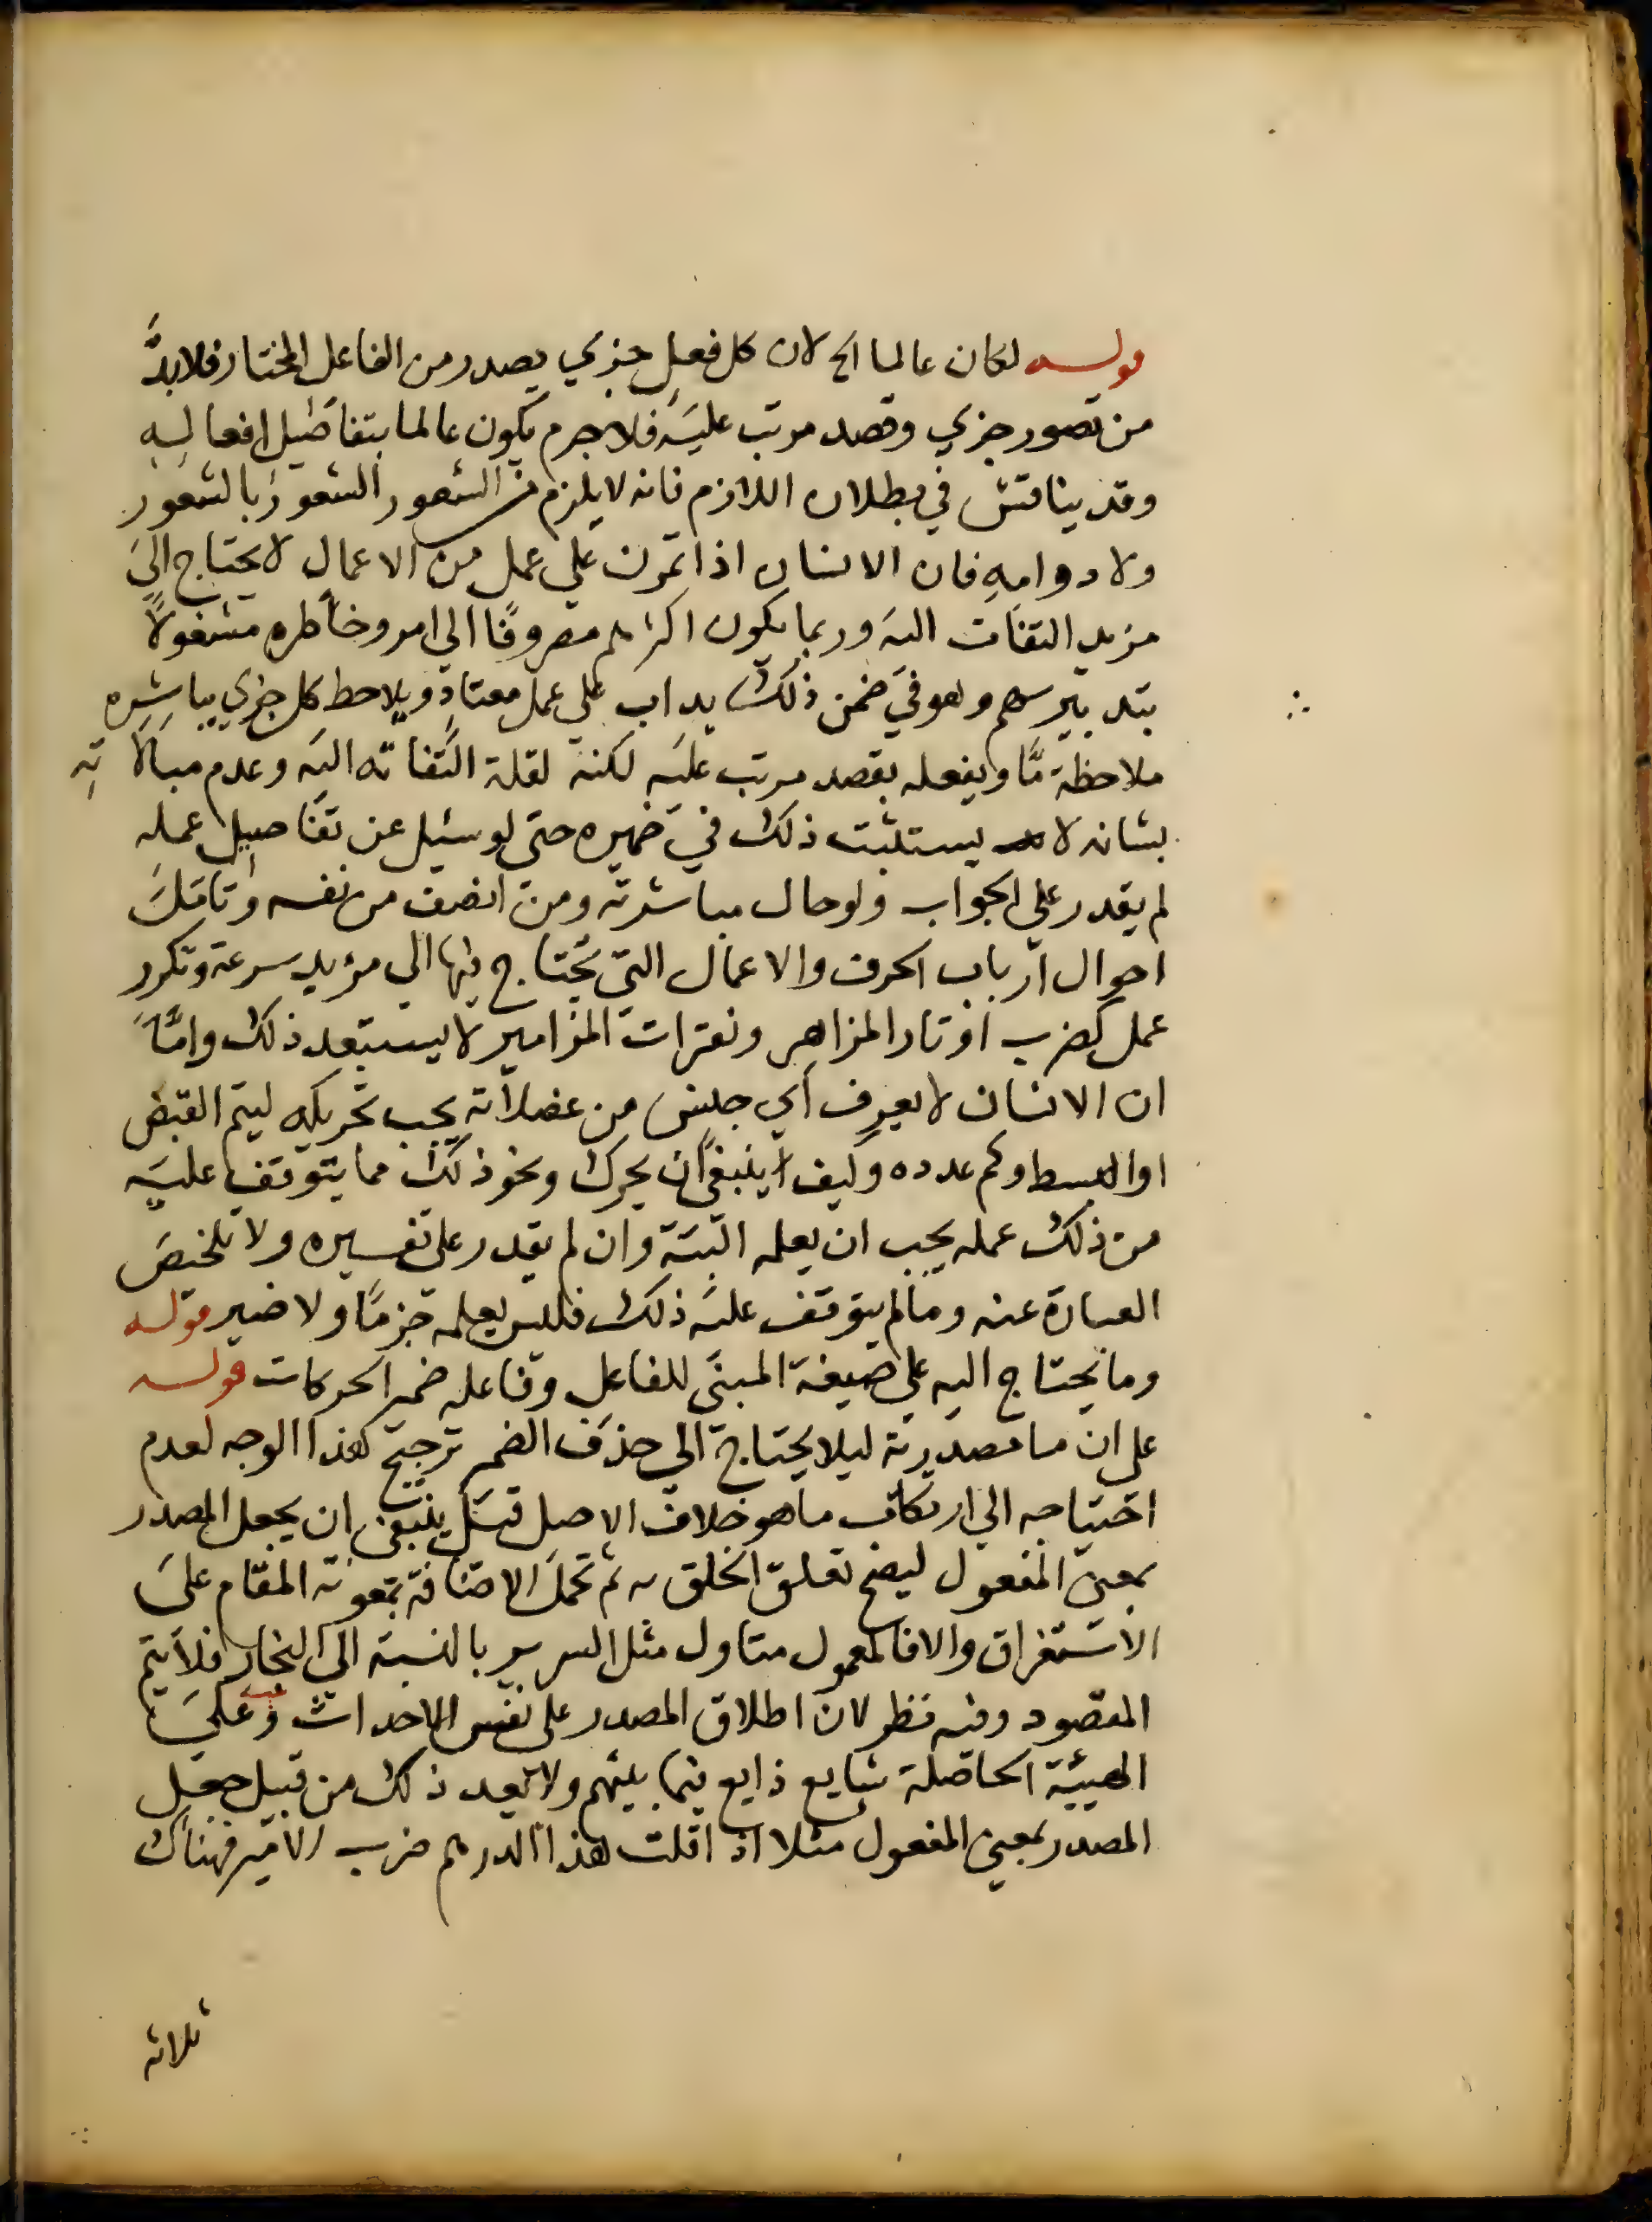 قوله لكان عالما الخ لان كل فعل جزي يصدر من الفاعل المختار فلا بدَّ
من تصور جزي وقصد مرتب عليه فلا جرم يكون عالما بتفاصيل افعاليه
وقد يناقش في بطلان اللازم فانه لا يلزم من الشعور الشعور بالشعور
ولا دوامه فان الانسان اذا تمرن علي عمل من الاعمال لا يحتاج الي
مزيد التفات اليه وربما يكون اكثرهم مصروفًا الي امر وخاطره مشغولًا
بتدبيرهم وهو في ضمن ذلك يداب علي عمل معتاد ويلاحظ كل جزي يباشره
ملاحظة مَّا ويفعله بقصد مرتب عليه لكنه لقلة التفاته اليه وعدم مبالاته
بشانه لا يستثبت ذلك في ضميره حتي لو سئيل عن تفاصيل عمله
لم يقدر علي الجواب ولو حال مباشرته ومن انصف من نفسه وتامل
احوال ارباب الحرف والاعمال التي يُحتاج فيها الي مزيد سرعة وتكرر
عمل كضرب اوتار المزاهر ونقرات المزامير لا يستبعد ذلك وامَّا
ان الانسان لا يعرف اي جنس من عضلاته يجب تحريكه ليتم القبض
او البسط وكم عدده وكيف ينبغي ان يحرك ونحو ذلك مما يتوقف عليه
من ذلك عمله يجب ان يعلمه البتة وان لم يقدر على تفسيره ولا تلخيص
العبارة عنه وما لم يتوقف عليه ذلك فليس يعلمه جزمًا ولا ضير قوله
وما يحتاج اليه علي صيغة المبني للفاعل وفاعله ضمير الحركات قوله
علي ان ما مصدرية ليلا يحتاج الي حذف الضمير ترجيح لهذا الوجه لعدم
احتياجه الي ارتكاب ما هو خلاف الاصل قيل ينبغي ان يجعل المصدر
بمعني المفعول ليصح تعلق الخلق به ثم تحمل الاضافة بمعونة المقام علي
الاستغراق والا فالمعمول متاول مثل السرير بالنسبة الي النجار فلا يتم
المقصود وفيه نظر لان اطلاق المصدر على نفس الاحداث وعلي
الهيئة الحاصلة شايع ذايع فيما بينهم ولا يعد ذلك من قبيل جعل
المصدر بمعني المفعول مثلا اذا قلت هذا الدرهم ضرب الامير فهناك
ثلاثه